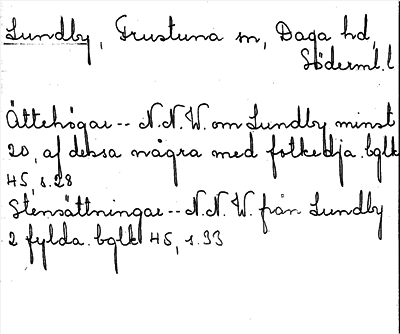 Lundby, Frustuna sn, Daga hd,
Söderml. l
Ättehögar -- N.N.W. om Lundby minst
20, af dessa några med fotkedja. bglk
45, s. 28
Stensättningar -- N.N.W. från Lundby
2 fylda. bglk 45, s. 33